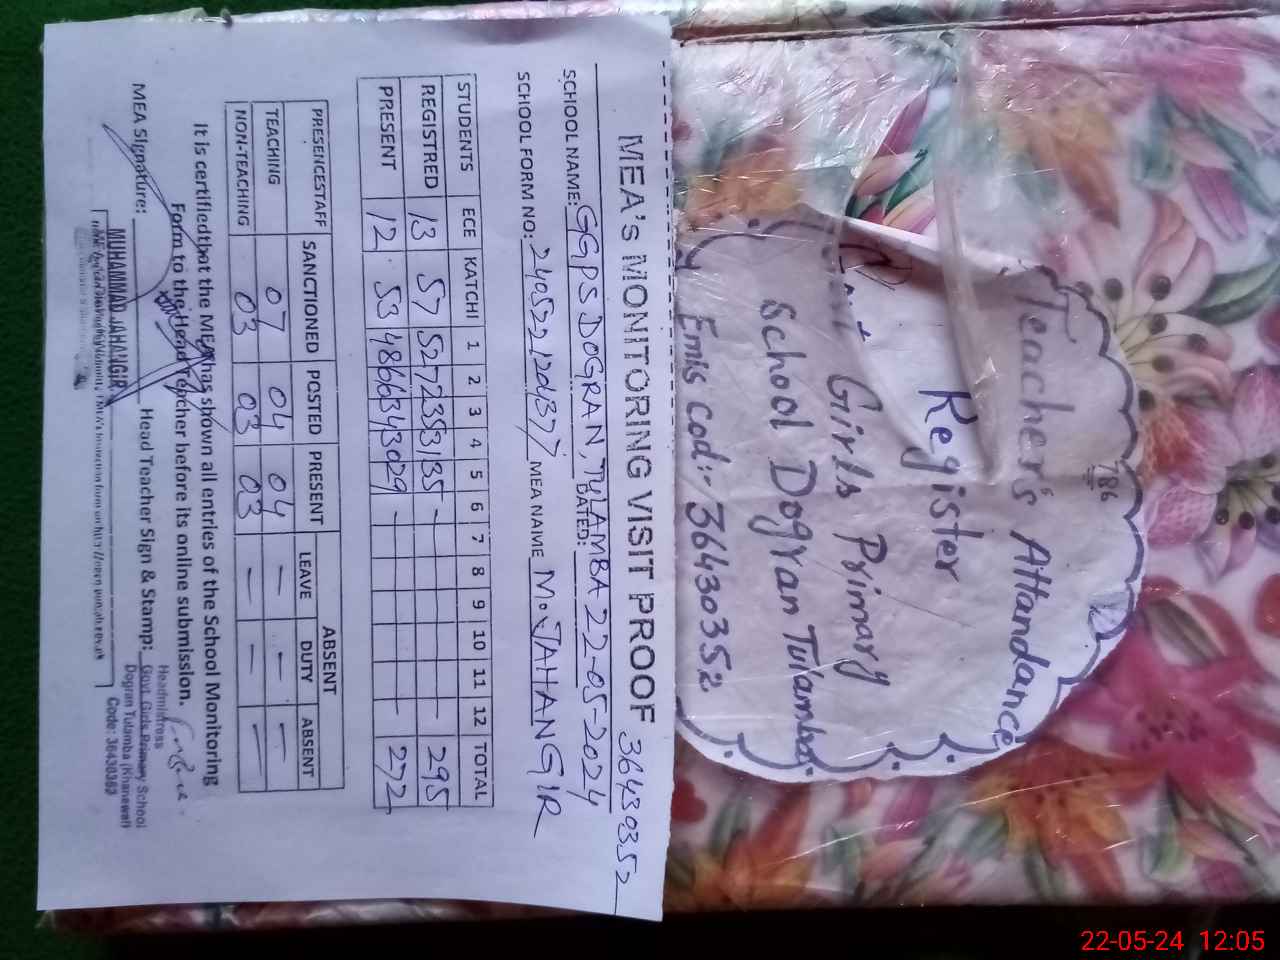 MEA'S MONITORING VISIT PROOF 36430352
SCHOOL NAME: GGPS DOGRAN, TULAMBA DATED: 22-05-2024
SCHOOL FORM NO: MEA NAME M. JAHANGIR
STUDENTS ECE KATCHI 1 2 3 4 5 6 7 8 9 10 11 12 TOTAL
REGISTRED 13 57 52 72 35 31 35 - 295
PRESENT 12 53 48 66 34 30 29 - 272
PRESENCESTAFF SANCTIONED POSTED PRESENT ABSENT
LEAVE DUTY ABSENT
TEACHING 07 04 04 - - -
NON-TEACHING 03 03 03 - - -
It is certifiedthat the MEA has shown all entries of the School Monitoring
Form to the Head Teacher before its online submission.
MEA Signature: Head Teacher Sign & Stamp:
MUHAMMAD JAHANGIR
Headmistress
Govt. Girls Primary School
Dogran Tulamba (Khanewal)
Code: 36430352
786
Teacher's Attandance
Register
Girls Primary
School Dogran Tulamba
Emis cod:- 36430352
22-05-24 12:05